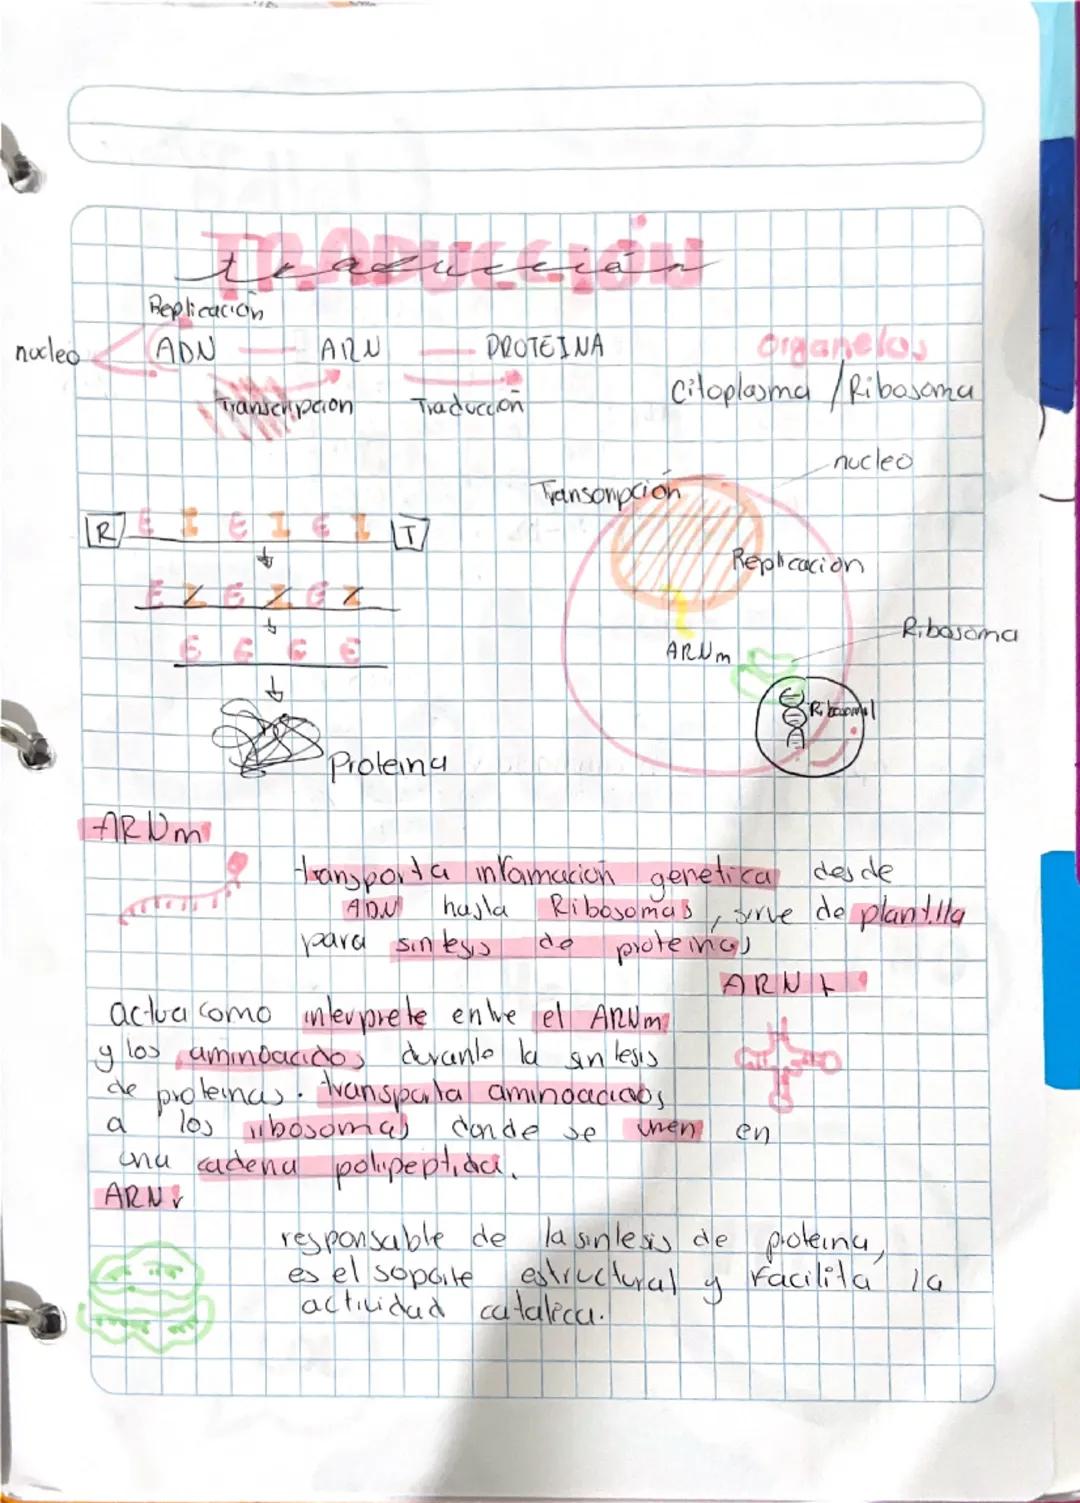 TRADUCCIÓN
traducción
Replicación
nucleo ADN ARN PROTEINA organelos
Transcripcion Traducción Citoplasma / Ribosoma
nucleo
Transcripción
R E I E I E I T
Replicacion
E I E I E I
Ribosoma
ARNm
E E E E
Ribosomal
Proteina
ARNm
transporta información genetica desde
ADN hasta Ribosomas, sirve de plantilla
para sintesis de proteinas
ARN t
actua como interprete entre el ARNm
y los aminoacidos durante la sintesis
de proteinas. transporta aminoacidos
a los ribosomas donde se unen en
una cadena polipeptidica.
ARN r
responsable de la sintesis de proteina,
es el soporte estructural y facilita la
actividad catalica.